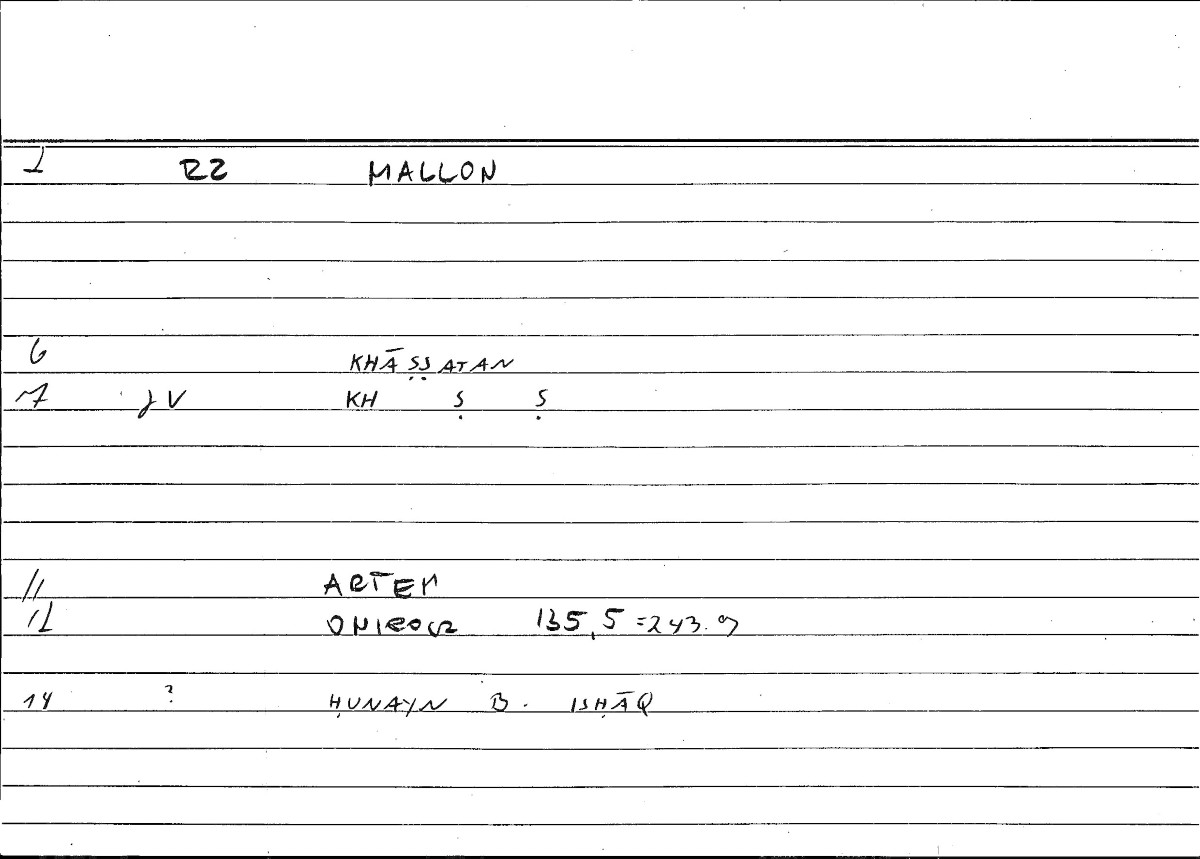 1 RZ MALLON
6 KHĀṢṢATAN
7 JV KH Ṣ Ṣ
11 ARTEM
12 ONIROCR 135,5 =243.9
14 ? ḤUNAYN B. ISḤĀQ